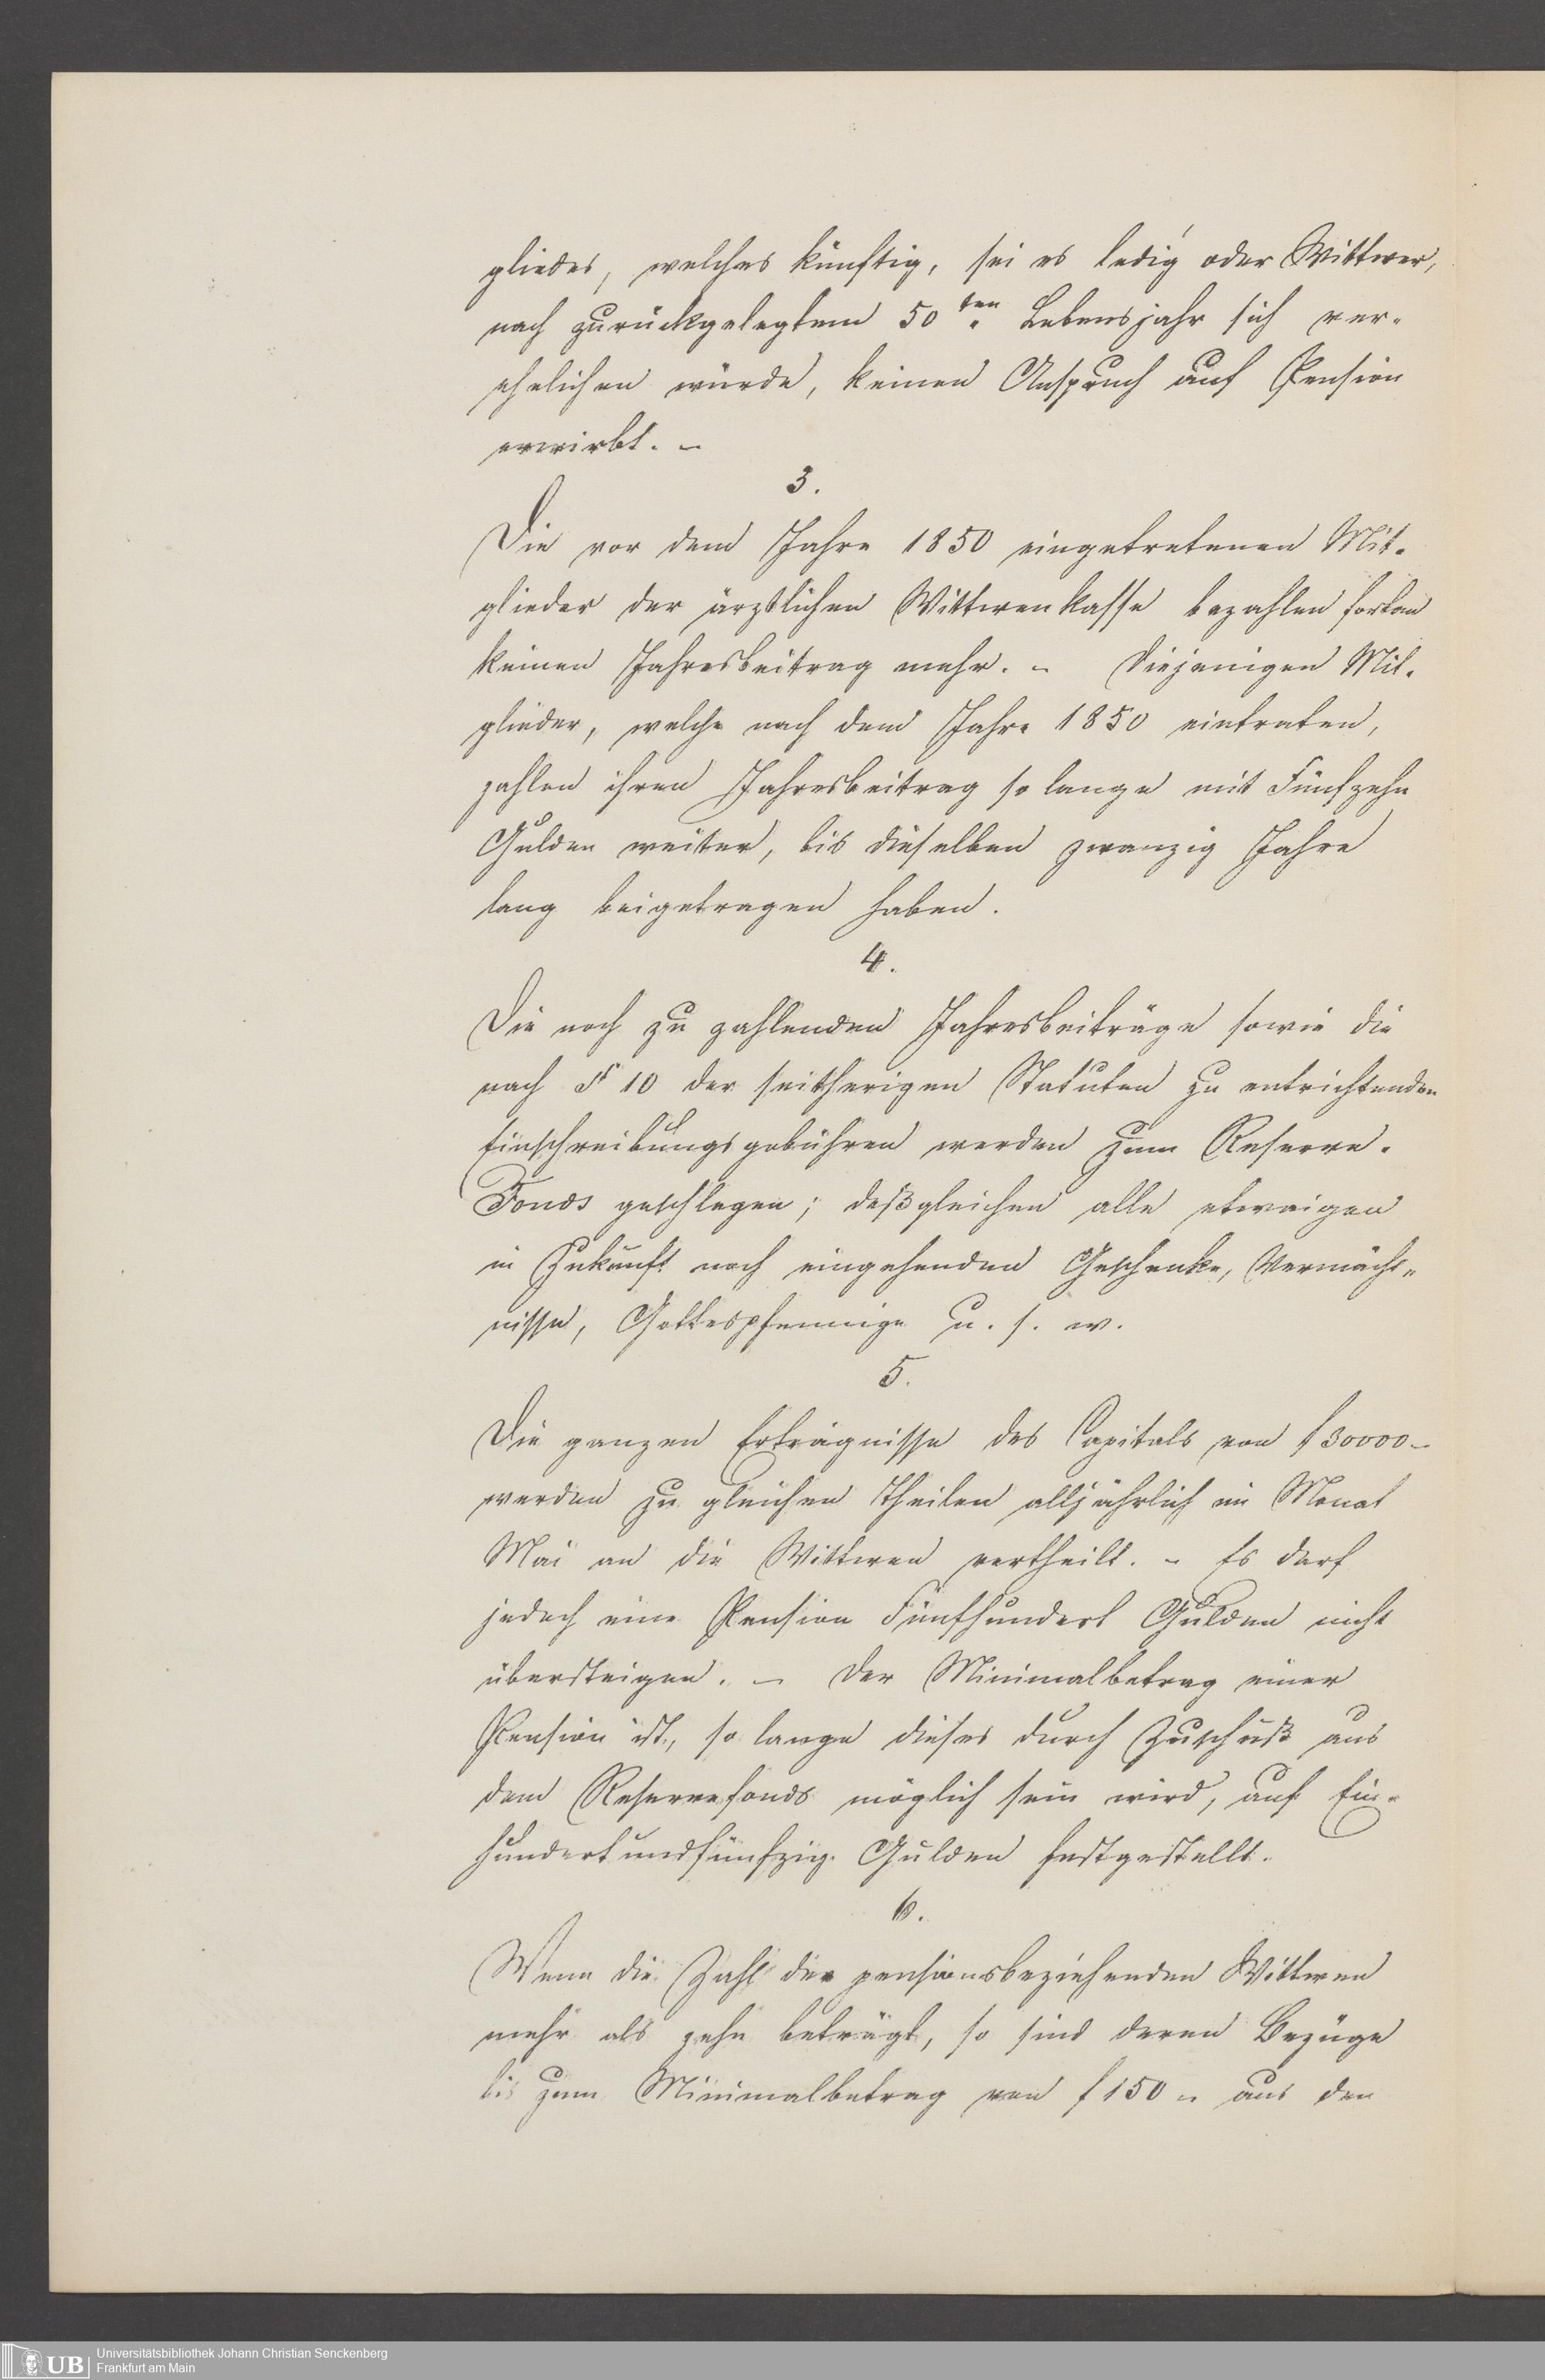 gliedes, welches künftig, sei es ledig oder Wittwer,
nach zurückgelegtem 50ten Lebensjahr sich ver-
ehelichen würde, keinen Anspruch auf Pension
erwirbt. –
3.
Die vor dem Jahre 1850 eingetretenen Mit-
glieder der ärztlichen Wittwenkasse bezahlen fortan
keinen Jahresbeitrag mehr. – Diejenigen Mit-
glieder, welche nach dem Jahre 1850 eintraten,
zahlen ihren Jahresbeitrag so lange mit Fünfzehn
Gulden weiter, bis dieselben zwanzig Jahre
lang beigetragen haben.
4.
Die noch zu zahlenden Jahresbeiträge sowie die
nach § 10 der seitherigen Statuten zu entrichtenden
Einschreibungsgebühren werden zum Reserve-
Fonds geschlagen; deßgleichen alle etwaigen
in Zukunft noch eingehenden Geschenke, Vermächt-
nisse, Gottespfennige u. s. w.
5.
Die ganzen Erträgnisse des Capitals von f 30000 –
werden zu gleichen Theilen alljährlich im Monat
Mai an die Wittwen vertheilt. – Es darf
jedoch eine Pension Fünfhundert Gulden nicht
übersteigen. – Der Minimalbetrag einer
Pension ist, so lange dieses durch Zuschuß aus
dem Reservefonds möglich sein wird, auf Ein-
hundertundfünfzig Gulden festgestellt.
6.
Wenn die Zahl der pensionsbeziehenden Wittwen
mehr als zehn beträgt, so sind deren Bezüge
bis zum Minimalbetrag von f 150 – aus den
UB Universitätsbibliothek Johann Christian Senckenberg
Frankfurt am Main